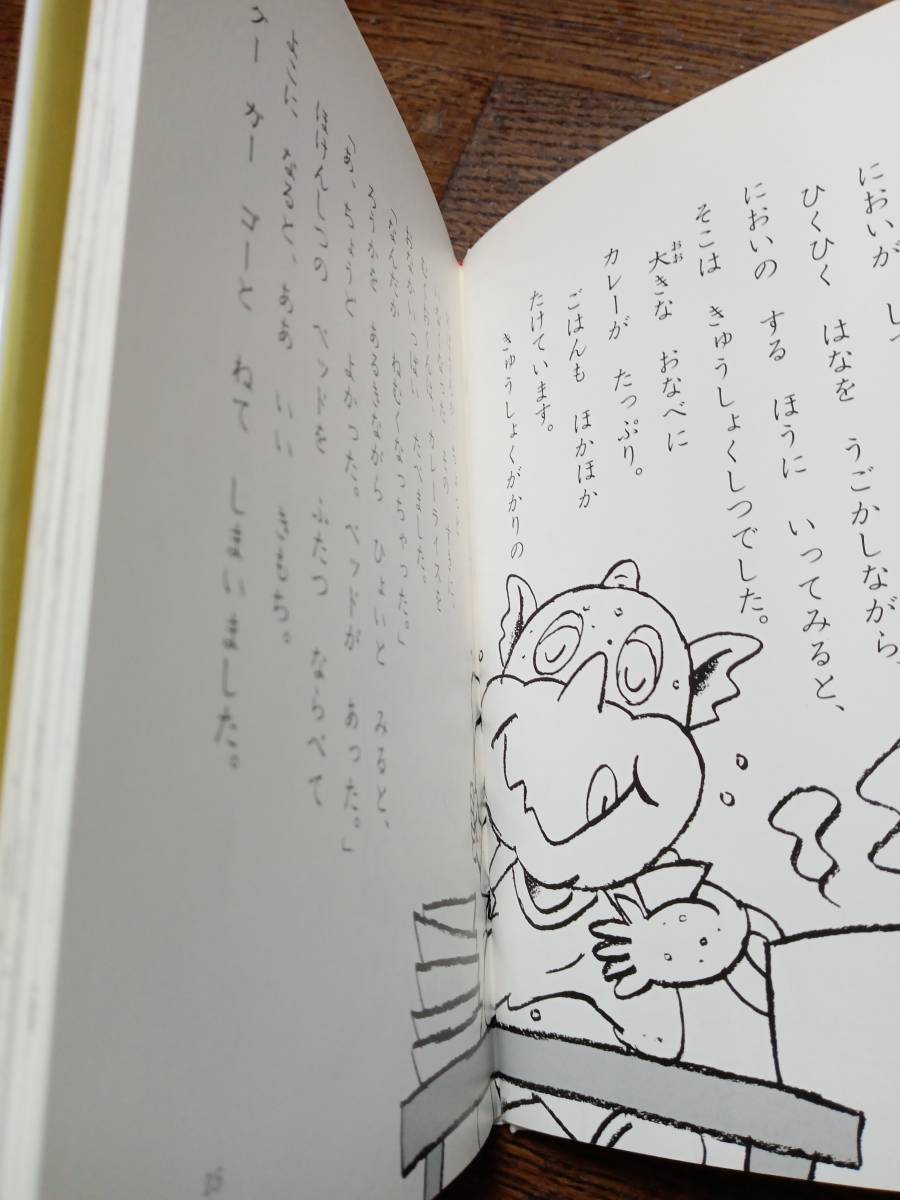 においが し
ひくひく はなを うごかしながら、
においの する ほうに いってみると、
そこは きゅうしょくしつでした。
大きな おなべに
おお
カレーが たっぷり。
ごはんも ほかほか
たけています。
きゅうしょくがかりの
おなかいっぱい たべました。
「なんだか ねむくなっちゃった。」
ろうかを あるきながら ひょいと みると、
「あ、ちょうど よかった。ベッドが あった。」
ほけんしつの ベッドを ふたつ ならべて
よこに なると、ああ いい きもち。
グー ガー ゴーと ねて しまいました。